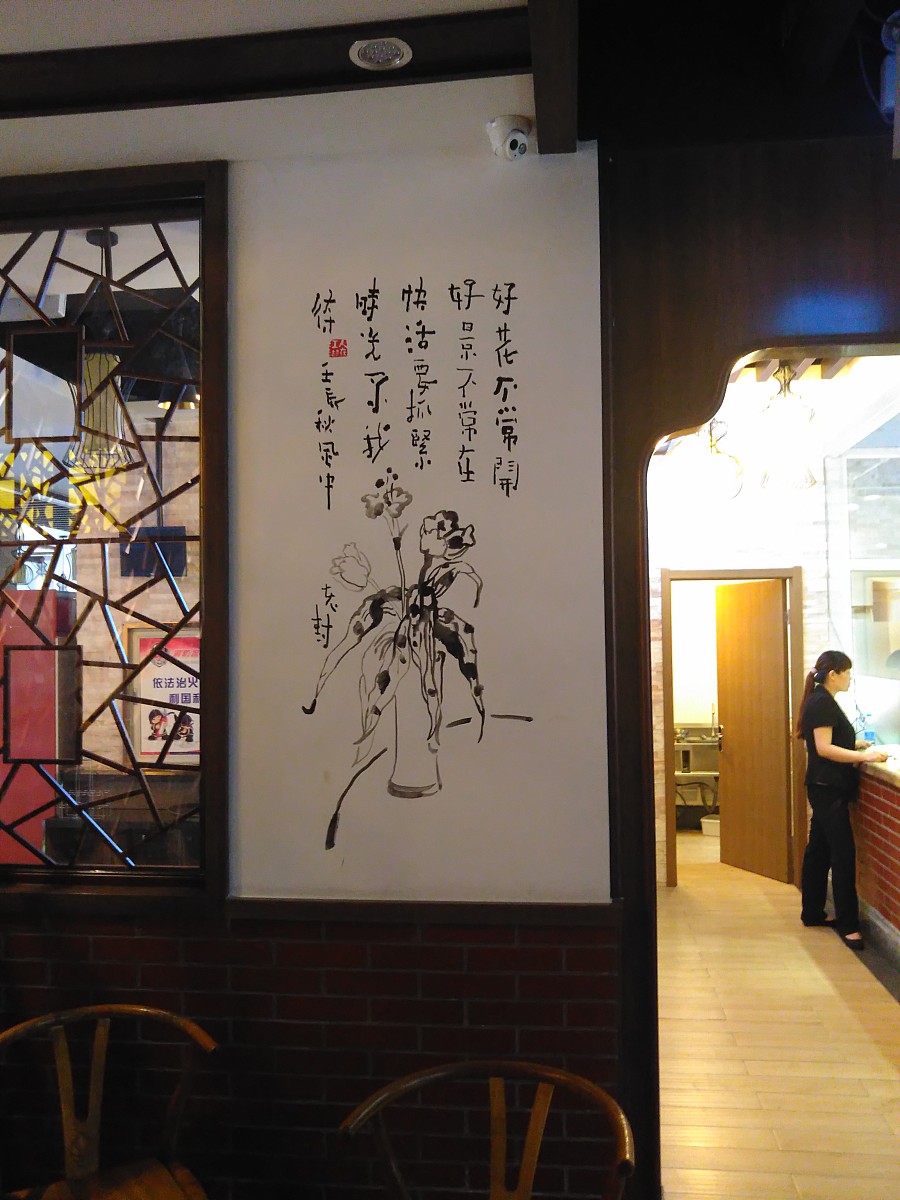 好花不常開
好景不常在
快活要抓緊
時光不
壬辰秋風中
依法治火
利国利